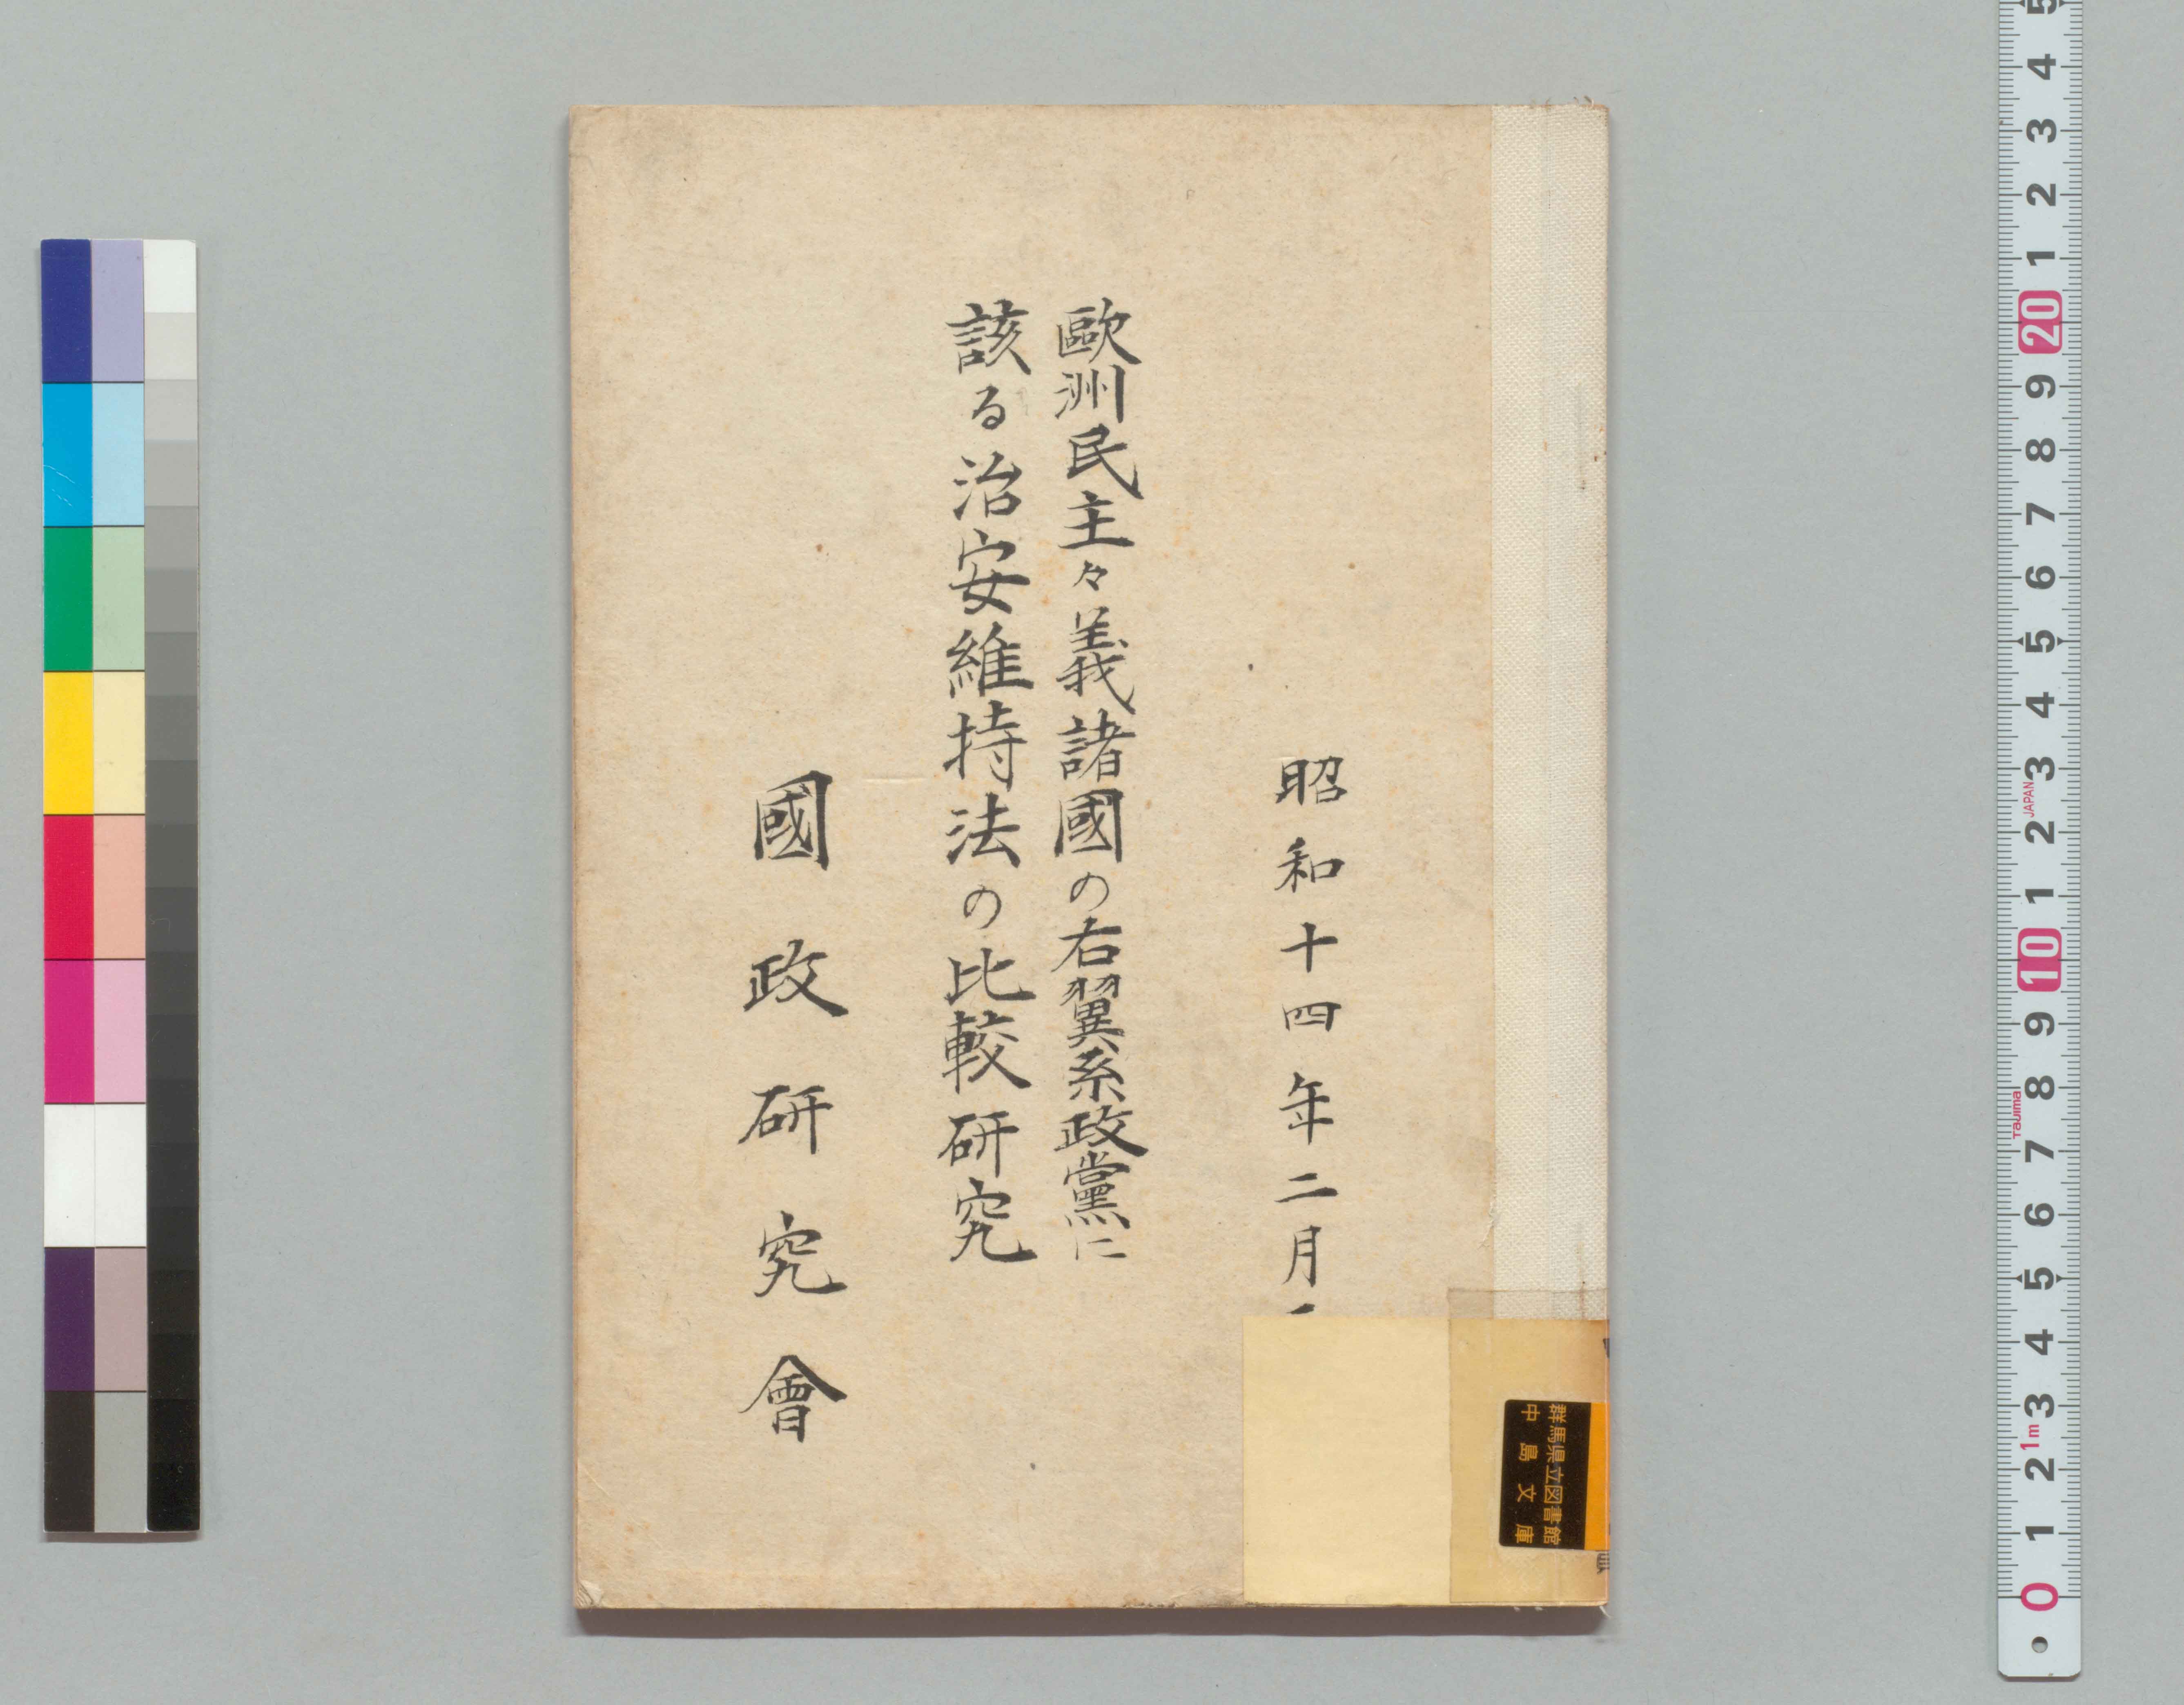 昭和十四年二月
歐洲民主々義諸國の右翼系政黨に
該る治安維持法の比較研究
國政研究會
群馬県立図書館
中島文庫
5 4 3 2 1 20 9 8 7 6 5 4 3 2 1 10 9 8 7 6 5 4 3 2 1 0
JAPAN
Tajima
1m